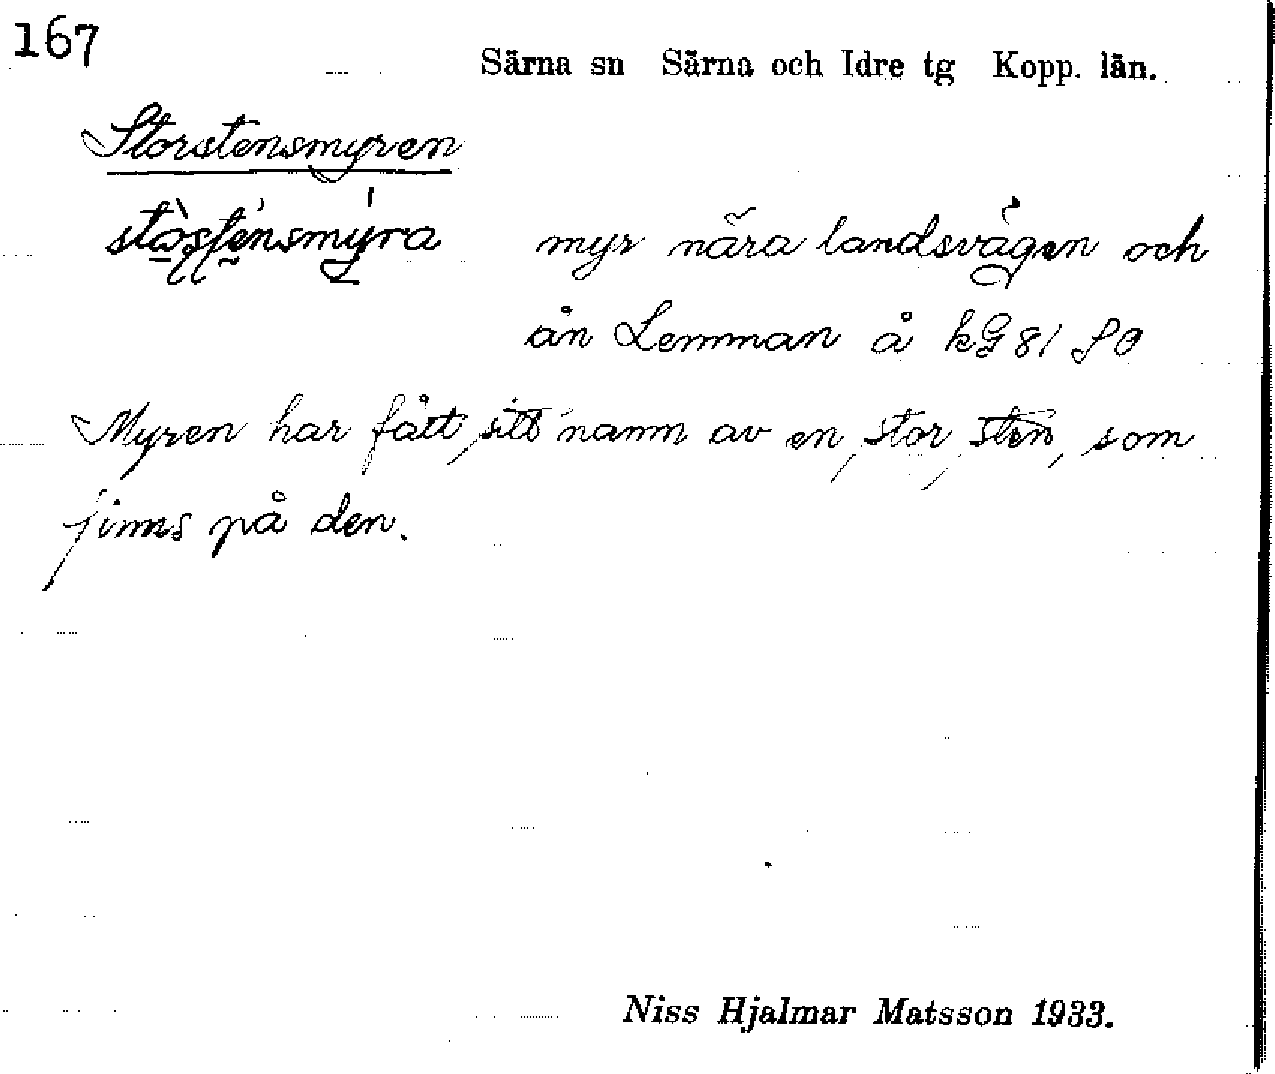 167
Särna sn Särna och Idre tg Kopp. län.
Storstensmyren
myr nära landsvägen och
ån Lemman å kG 81 SO
Myren har fått sitt namn av en stor sten, som
finns på den.
Niss Hjalmar Matsson 1933.